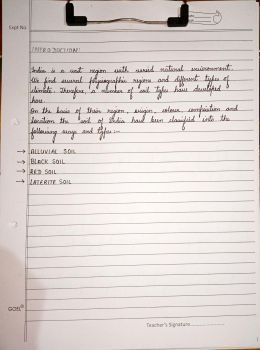 Expt No.
INTRODUCTION:
India is a vast region with varied natural environment.
We find several physiographic regions and different types of
climate. Therefore, a number of soil types have developed
here.
On the basis of their region, origin, colour, composition and
location the soil of India have been classified into the
following ways and types :-
→ ALLUVIAL SOIL
→ BLACK SOIL
→ RED SOIL
→ LATERITE SOIL
GOEL
Teacher's Signature